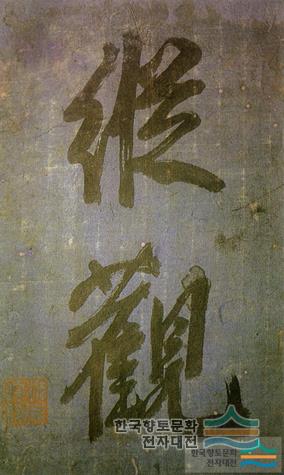 縱
觀
한국향토문화
전자대전
한국향토문화
전자대전